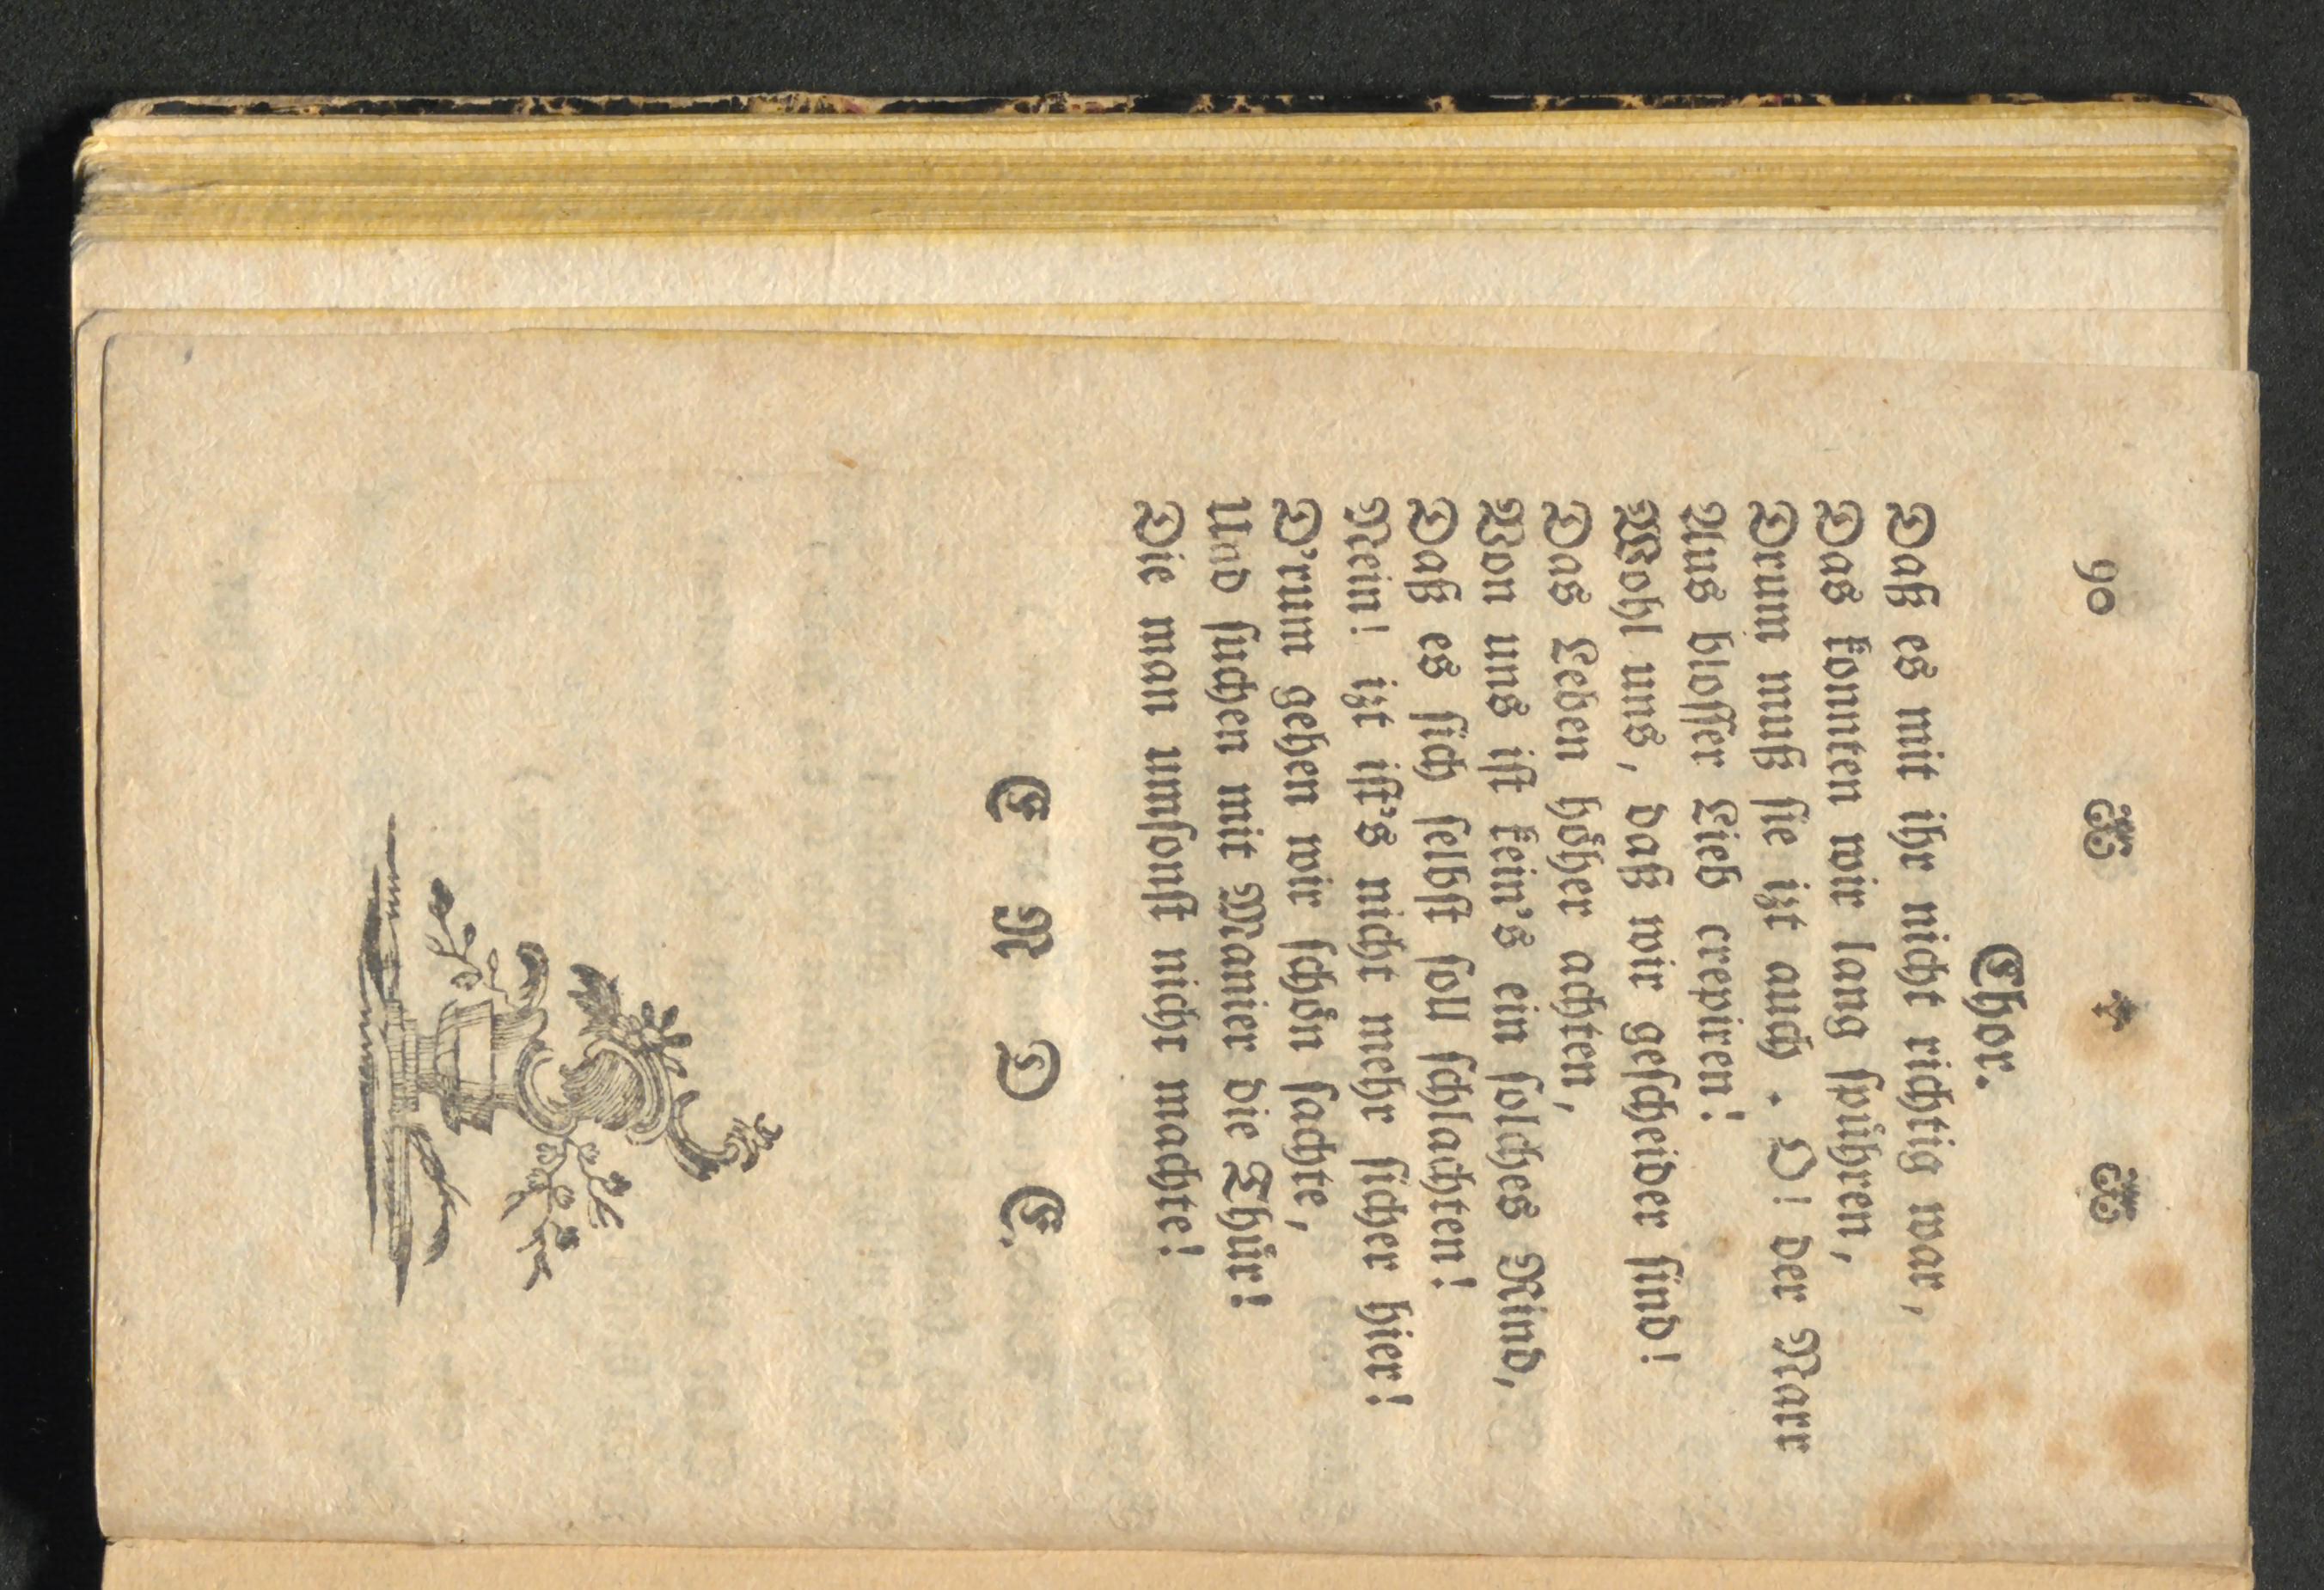 90
Chor.
Daß es mit ihr nicht richtig war,
Das konnten wir lang spühren,
Drum muß sie izt auch . O! der Narr
Aus blosser Lieb crepiren!
Wohl uns, daß wir gescheider sind!
Das Leben höher achten,
Von uns ist kein's ein solches Rind,
Daß es sich selbst soll schlachten!
Nein! izt ist's nicht mehr sicher hier!
D'rum gehen wir schön sachte,
Und suchen mit Manier die Thür!
Die man umsonst nicht machte!
E N D E.